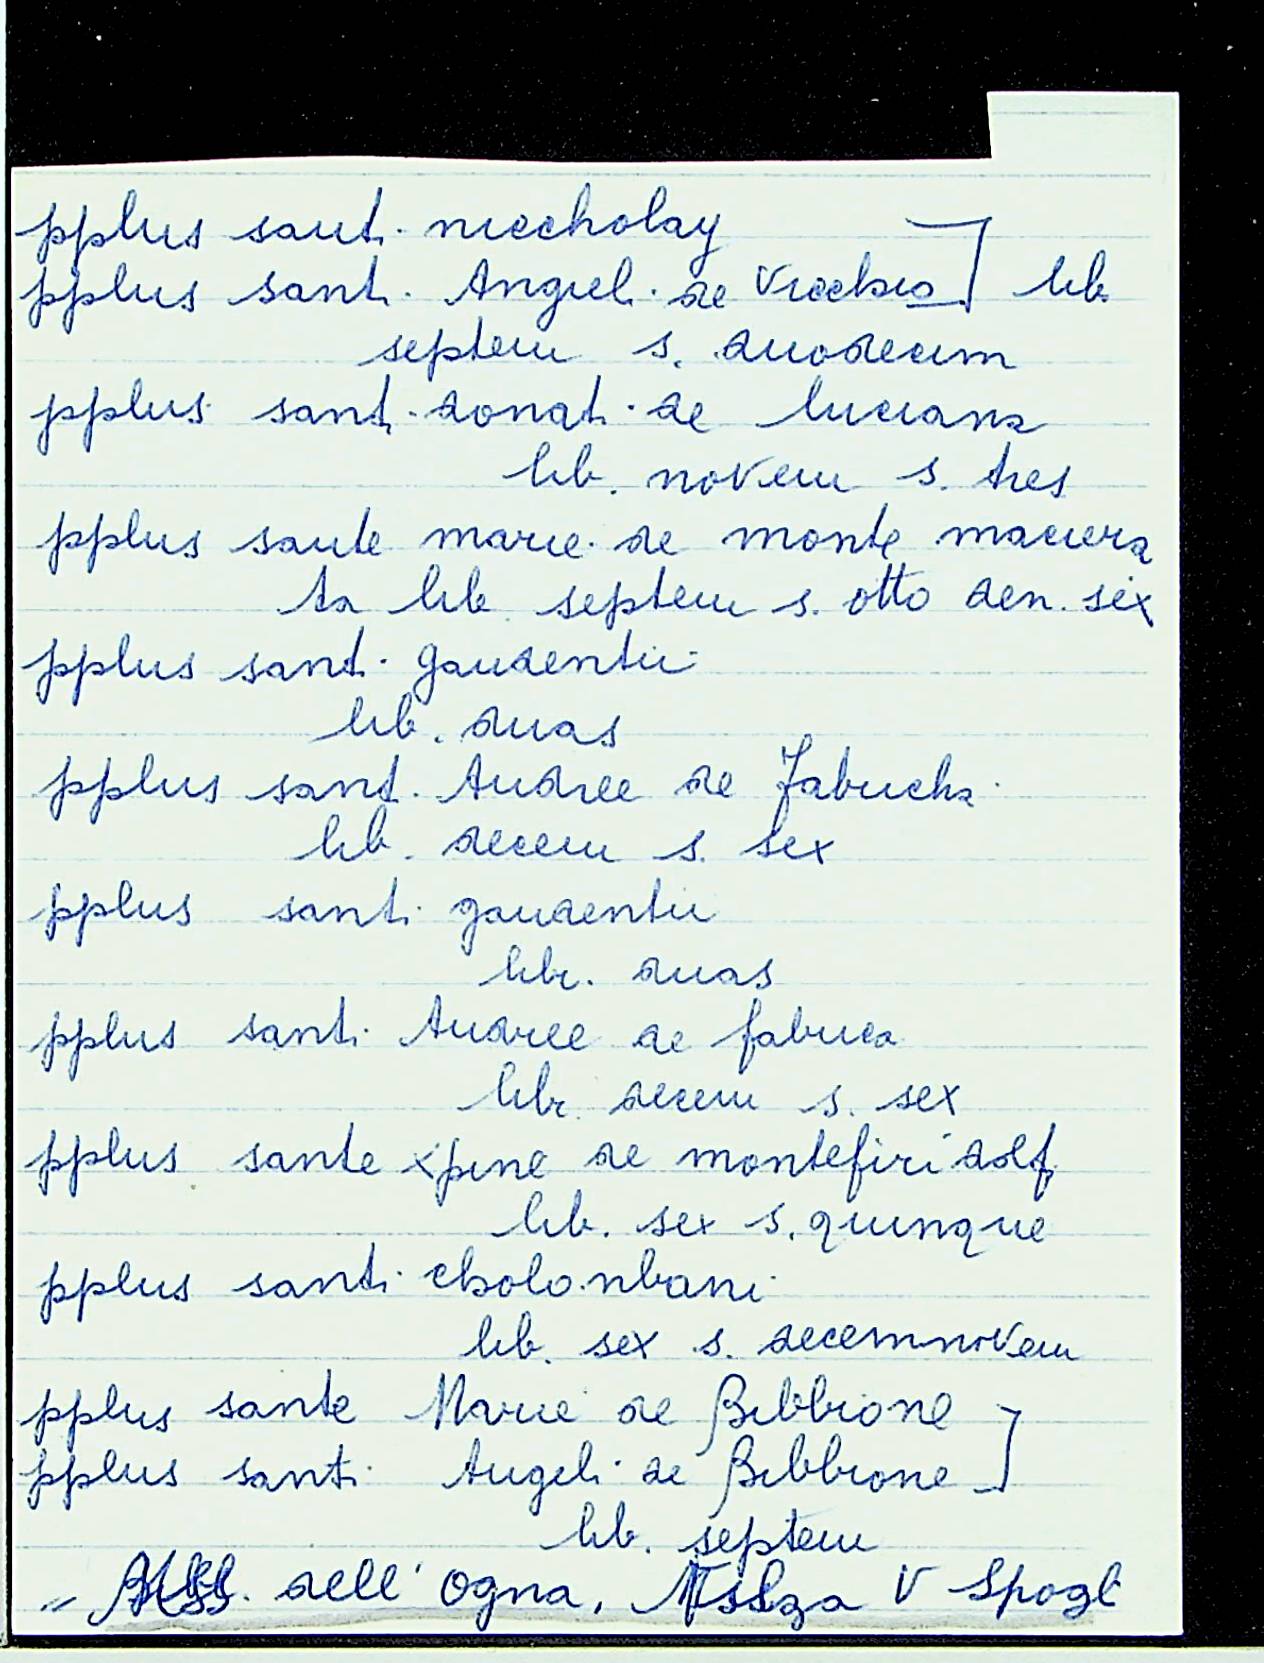 pplus sant. niccholay
pplus sant. Angieli. de Vicchio ] lib.
septem s. duodecim
pplus sant. donati. de luciana
lib. novem s. tres
pplus sante marie. de monte maciera
ta lib septem s. otto den. six
pplus sant. gaudentii.
lib. duas
pplus sant. Andree de Fabricha.
lib. decem s. sex
pplus santi. gaudentii
libr. duas
pplus santi. Andree de fabrica
libr. decem s. sex
pplus sante xpine de montefiridolf.
lib. sex s. quinque
pplus santi. cholonbani.
lib. sex s. decemnovem
pplus sante Marie de Bibbione
pplus santi. Angeli. de Bibbione ]
lib. septem
dell' Ogna, V Spogl